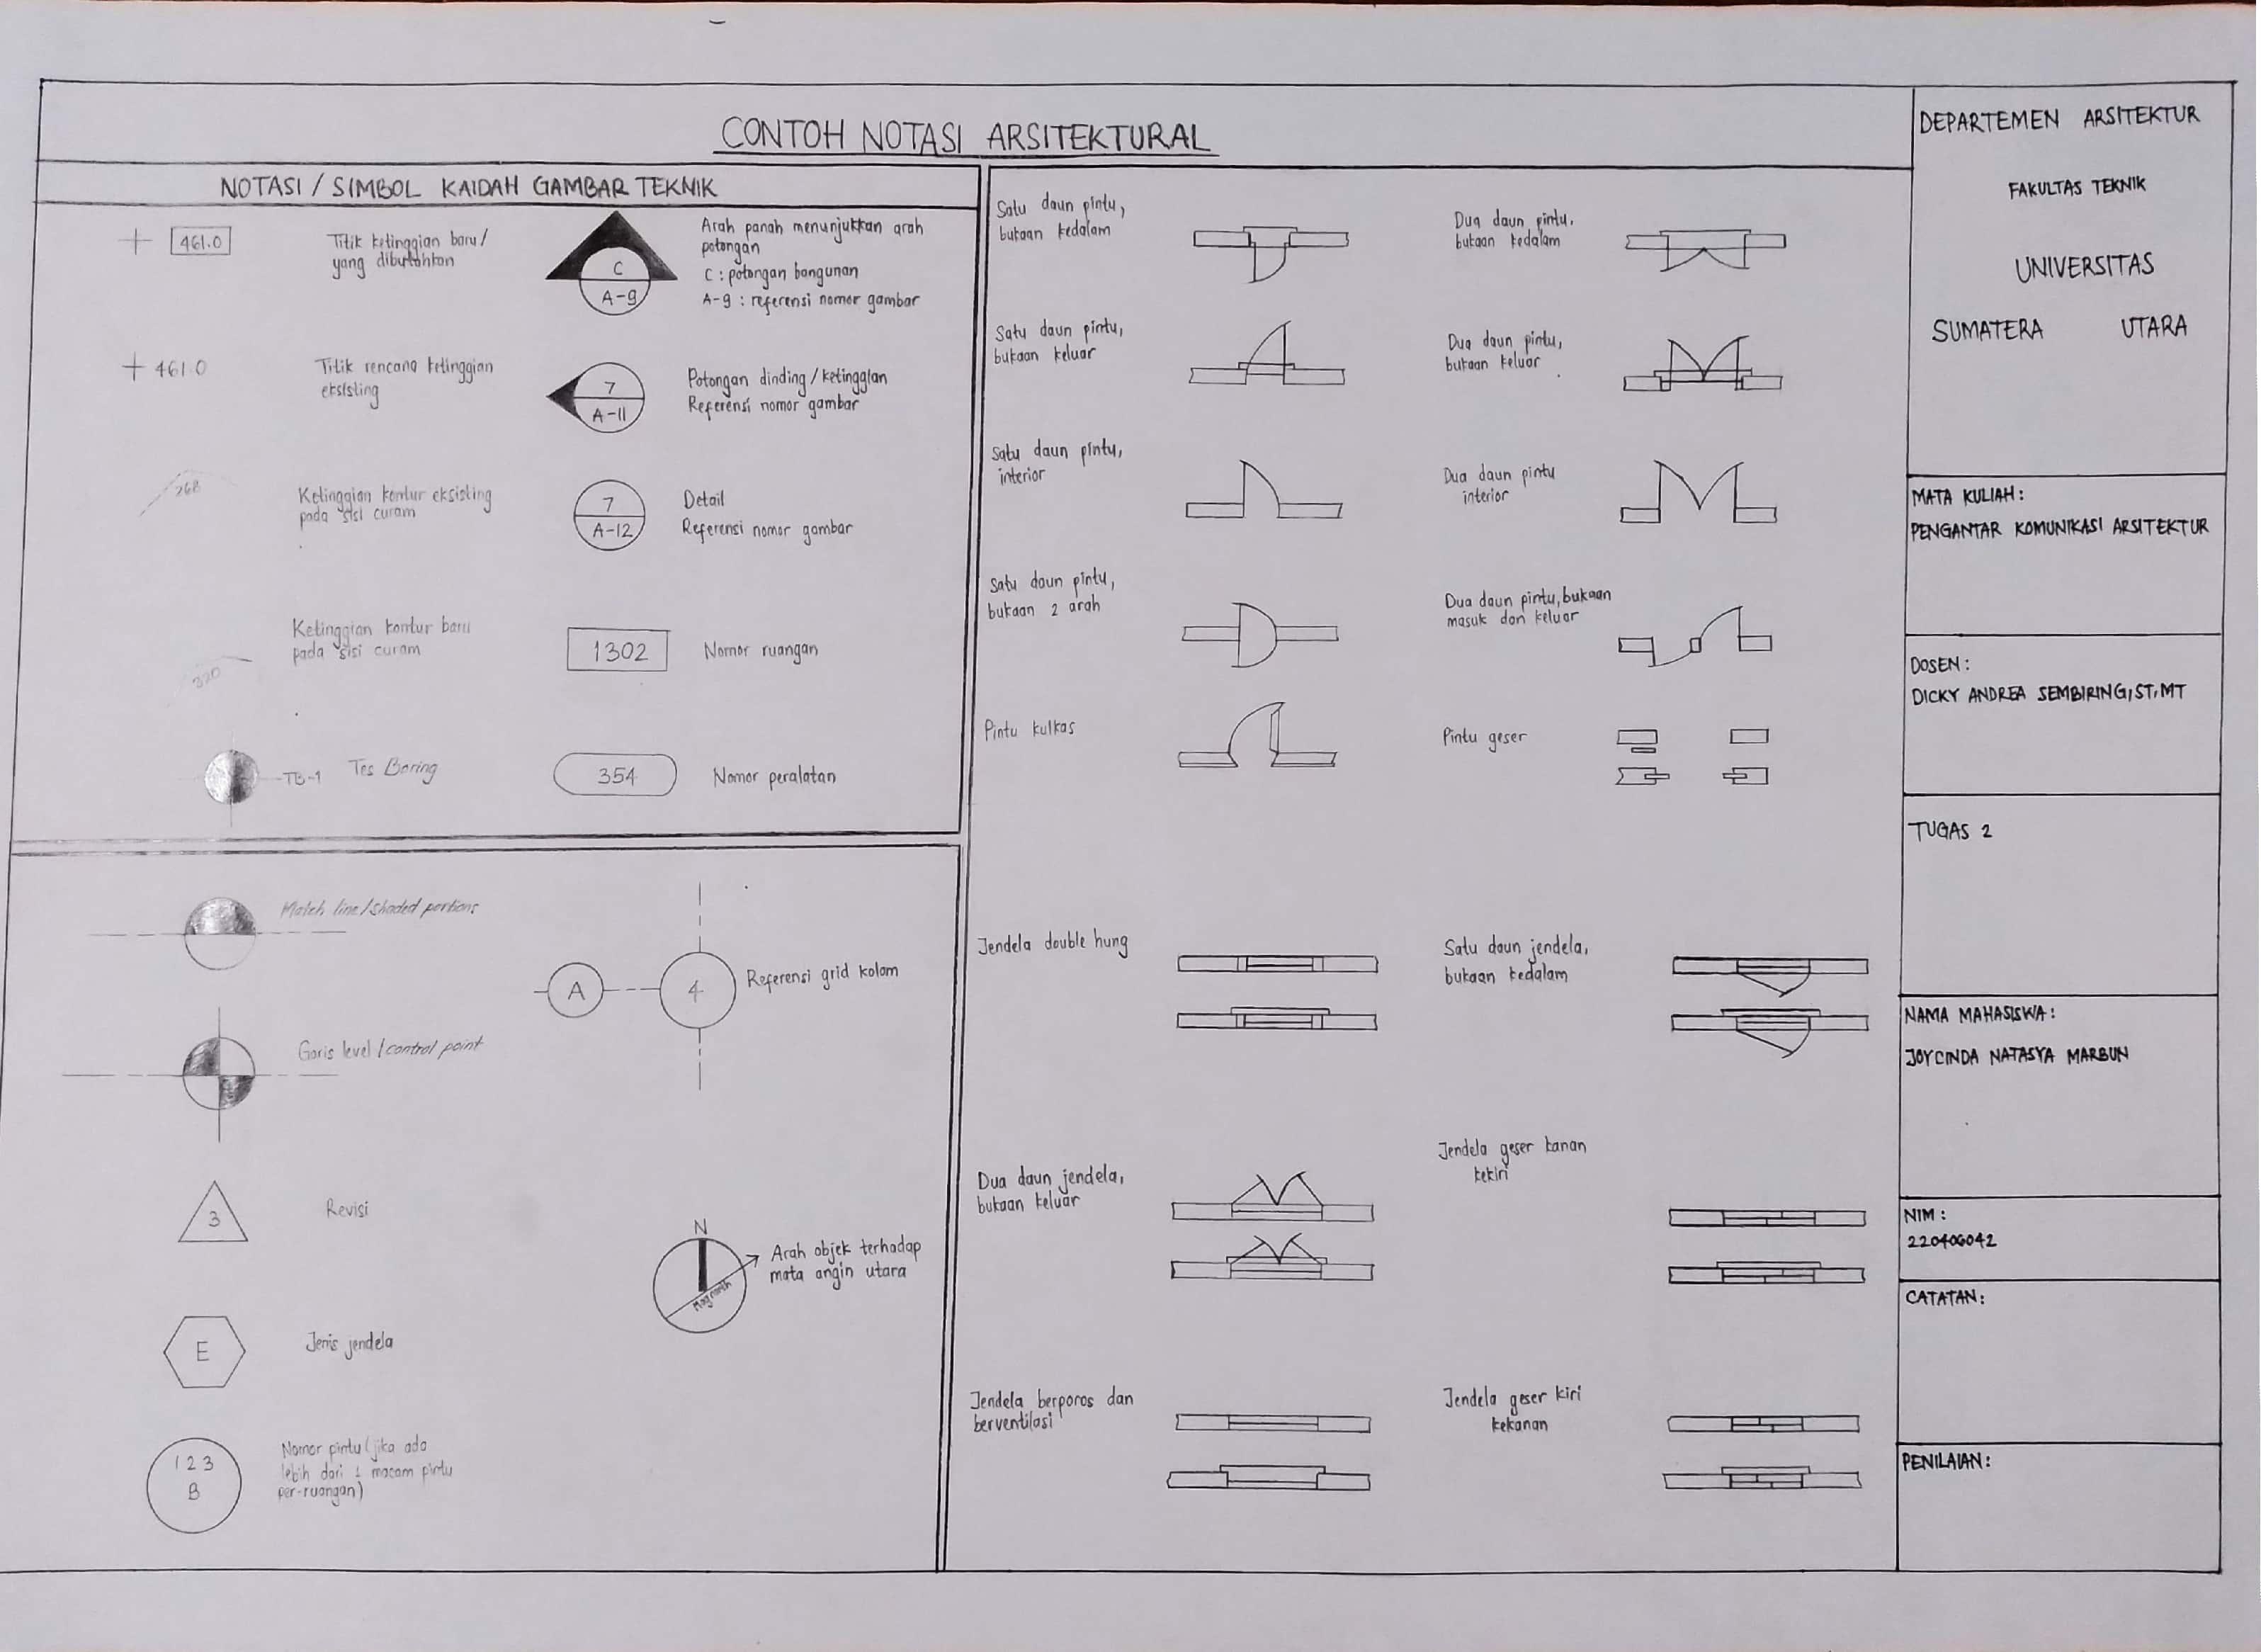 CONTOH NOTASI ARSITEKTURAL
NOTASI / SIMBOL KAIDAH GAMBAR TEKNIK
461.0
Titik ketinggian baru /
yang dibutuhkan
+ 461.0
Titik rencana ketinggian
eksisting
268
Ketinggian kontur eksisting
pada sisi curam
Ketinggian kontur baru
pada sisi curam
320
TB-1
Tes Boring
C
A-9
Arah panah menunjukkan arah
potongan
C : potongan bangunan
A-9 : referensi nomor gambar
7
A-11
Potongan dinding / ketinggian
Referensi nomor gambar
7
A-12
Detail
Referensi nomor gambar
1302
Nomor ruangan
354
Nomor peralatan
Match line / shaded portions
Garis level / control point
3
Revisi
E
Jenis jendela
123
B
Nomor pintu (jika ada
lebih dari 1 macam pintu
per-ruangan)
A
4
Referensi grid kolom
N
Mag north
Arah objek terhadap
mata angin utara
Satu daun pintu,
bukaan kedalam
Dua daun pintu,
bukaan kedalam
Satu daun pintu,
bukaan keluar
Dua daun pintu,
bukaan keluar
Satu daun pintu,
interior
Dua daun pintu
interior
Satu daun pintu,
bukaan 2 arah
Dua daun pintu, bukaan
masuk dan keluar
Pintu kulkas
Pintu geser
Jendela double hung
Satu daun jendela,
bukaan kedalam
Dua daun jendela,
bukaan keluar
Jendela geser kanan
kekiri
Jendela berporos dan
berventilasi
Jendela geser kiri
kekanan
DEPARTEMEN ARSITEKTUR
FAKULTAS TEKNIK
UNIVERSITAS
SUMATERA UTARA
MATA KULIAH :
PENGANTAR KOMUNIKASI ARSITEKTUR
DOSEN :
DICKY ANDREA SEMBIRING, ST, MT
TUGAS 2
NAMA MAHASISWA :
JOYCINDA NATASYA MARBUN
NIM :
220406042
CATATAN :
PENILAIAN :